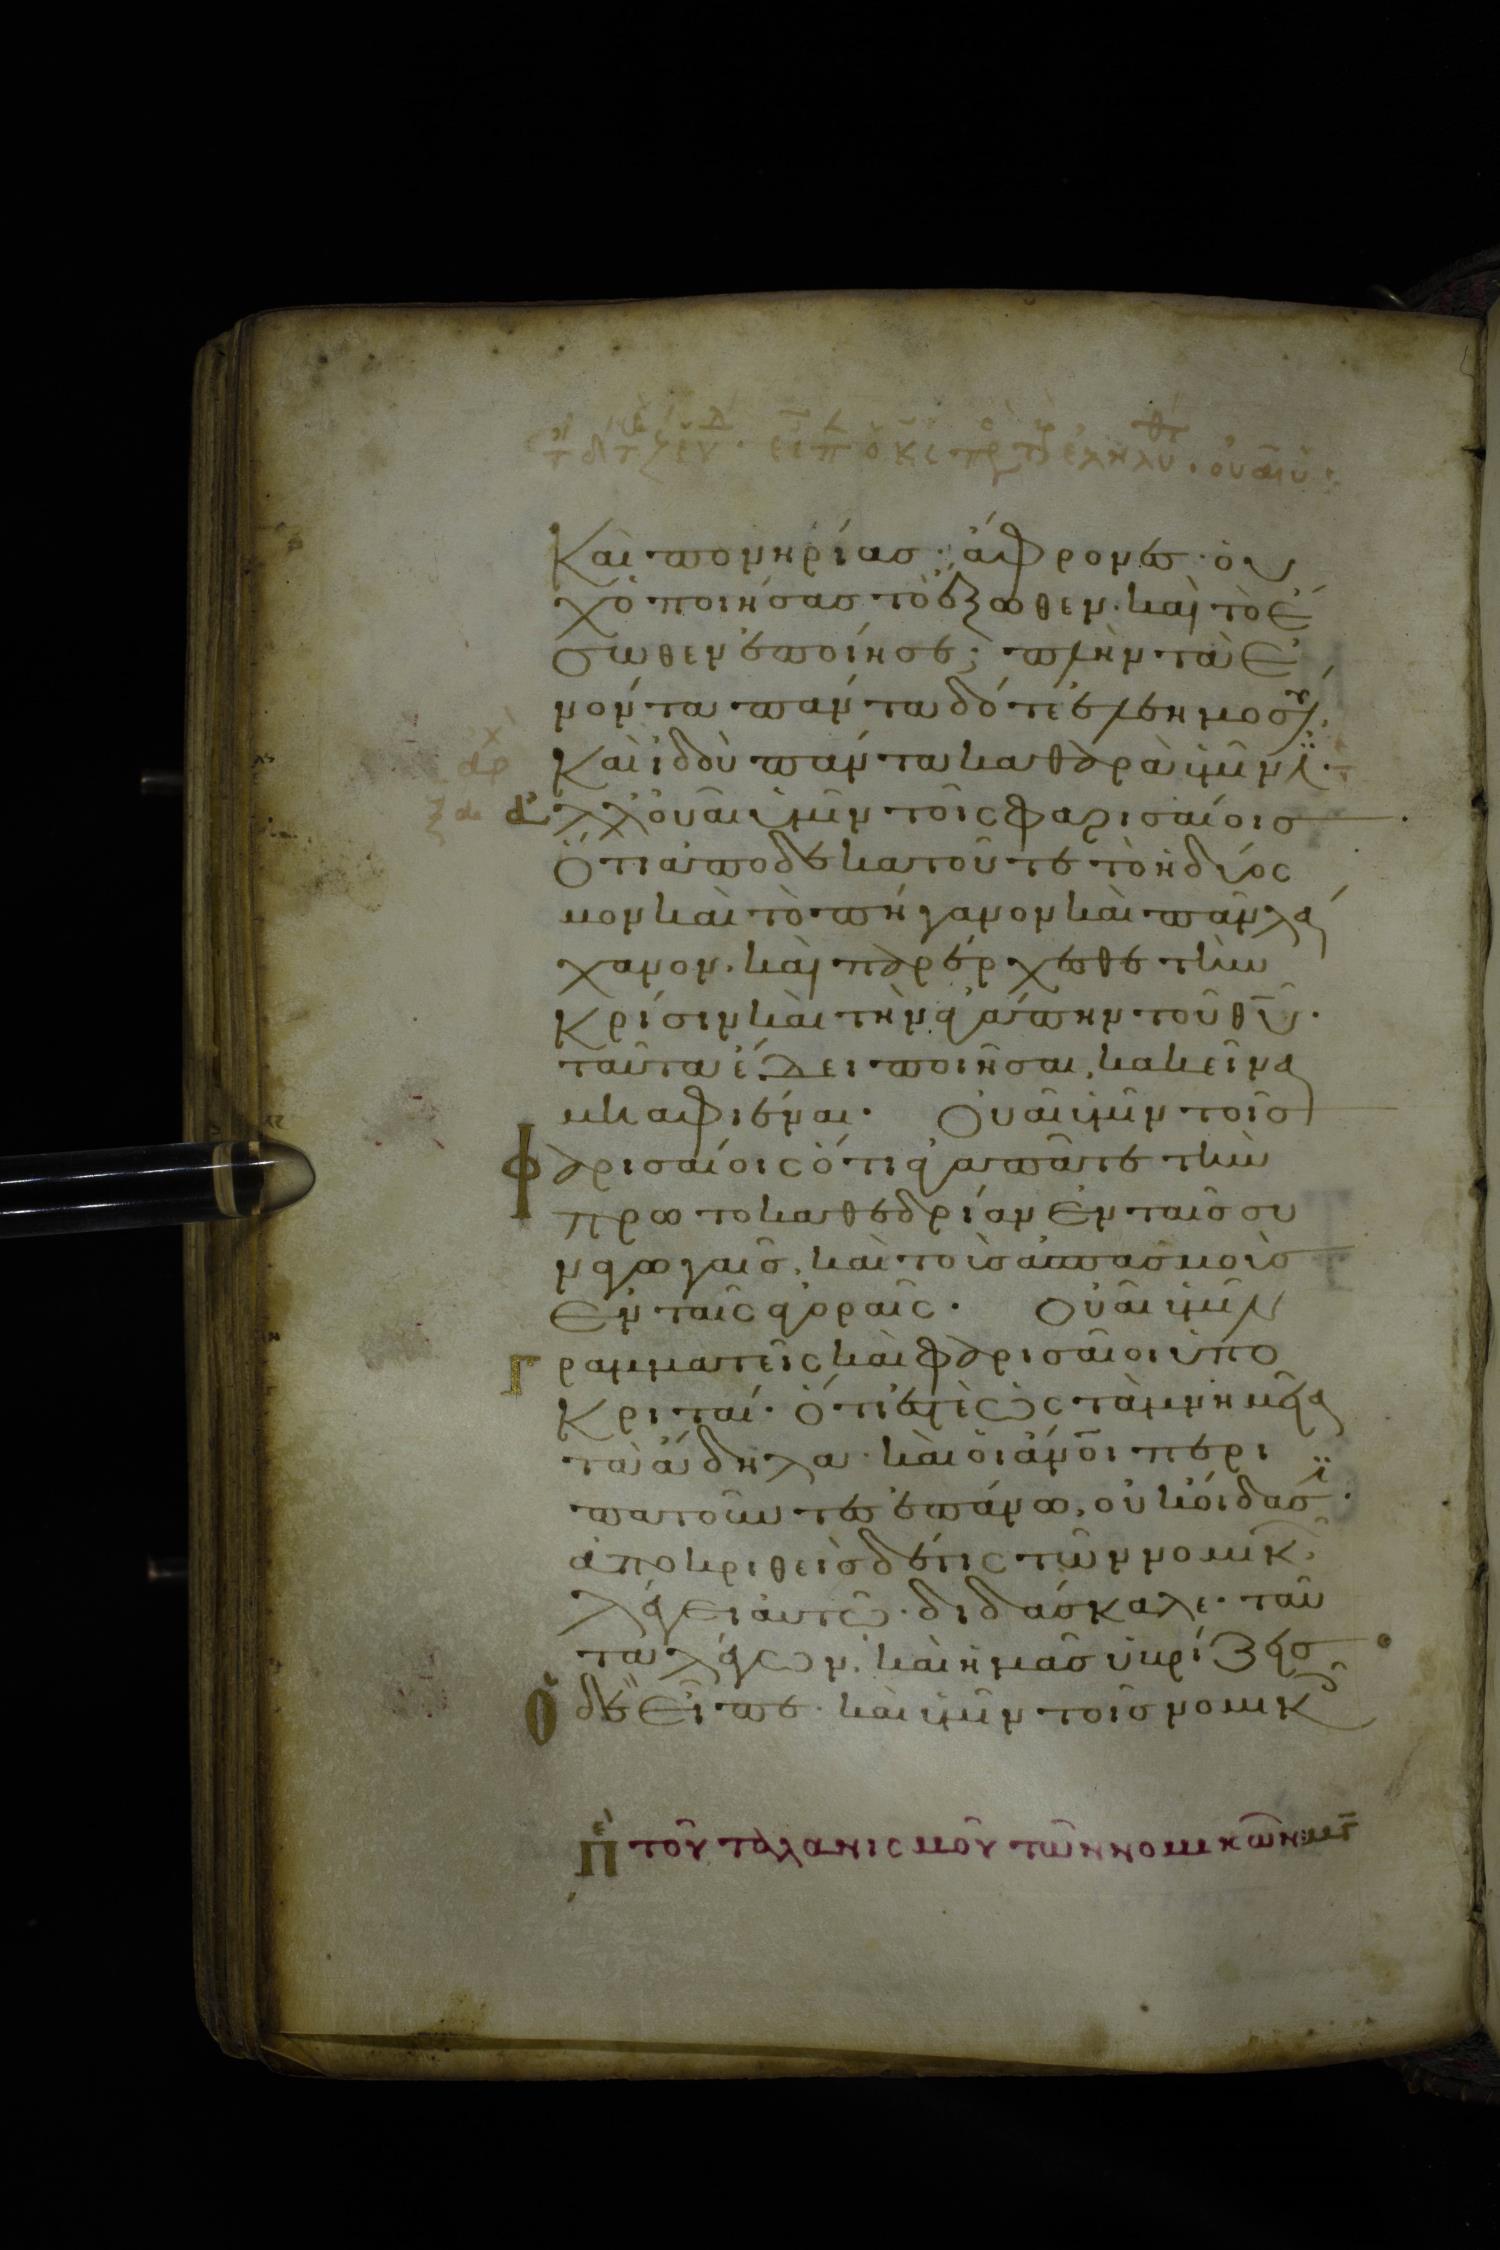 Καὶ πονηρίας· ἄφρονες· οὐ
χ ὁ ποιήσας τὸ ἔξωθεν· καὶ τὸ ἔ
σωθεν ἐποίησε; πλὴν τὰ ἐ
νόντα πάντα δότε ἐλεημοσύ
Καὶ ἰδοὺ πάντα καθαρὰ ὑμῖν
ἀλλ' οὐαὶ ὑμῖν τοῖς φαρισαίοις
Ὅτι ἀποδεκατοῦτε τὸ ἡδύος
μον καὶ τὸ πήγανον καὶ πᾶν λά
χανον· καὶ παρέρχεσθε τὴν
Κρίσιν καὶ τὴν ἀγάπην τοῦ θ̅υ̅·
ταῦτα ἔδει ποιῆσαι, κακεῖνα
μὴ ἀφιέναι· Οὐαὶ ὑμῖν τοῖς
Φαρισαίοις ὅτι ἀγαπᾶτε τὴν
πρωτοκαθεδρίαν ἐν ταῖς συ
ναγωγαῖς, καὶ τοὺς ἀσπασμοὺς
Ἐν ταῖς ἀγοραῖς· Οὐαὶ ὑμῖν
Γραμματεῖς καὶ φαρισαῖοι ὑπο
Κριταί· Ὅτι ἐστὲ ὡς τὰ μνημεῖα
τὰ ἄδηλα· καὶ οἱ ἄνοι περι
πατοῦντες ἐπάνω, οὐκ οἴδασι·
ἀποκριθεὶς δέ τις τῶν νομικ
λέγει αὐτῷ· διδάσκαλε· ταῦ
τα λέγων, καὶ ἡμᾶς ὑβρίζεις
Ὁ δὲ εἶπε· καὶ ὑμῖν τοῖς νομικ
Πὲ τοῦ ταλανισμοῦ τῶν νομικῶν